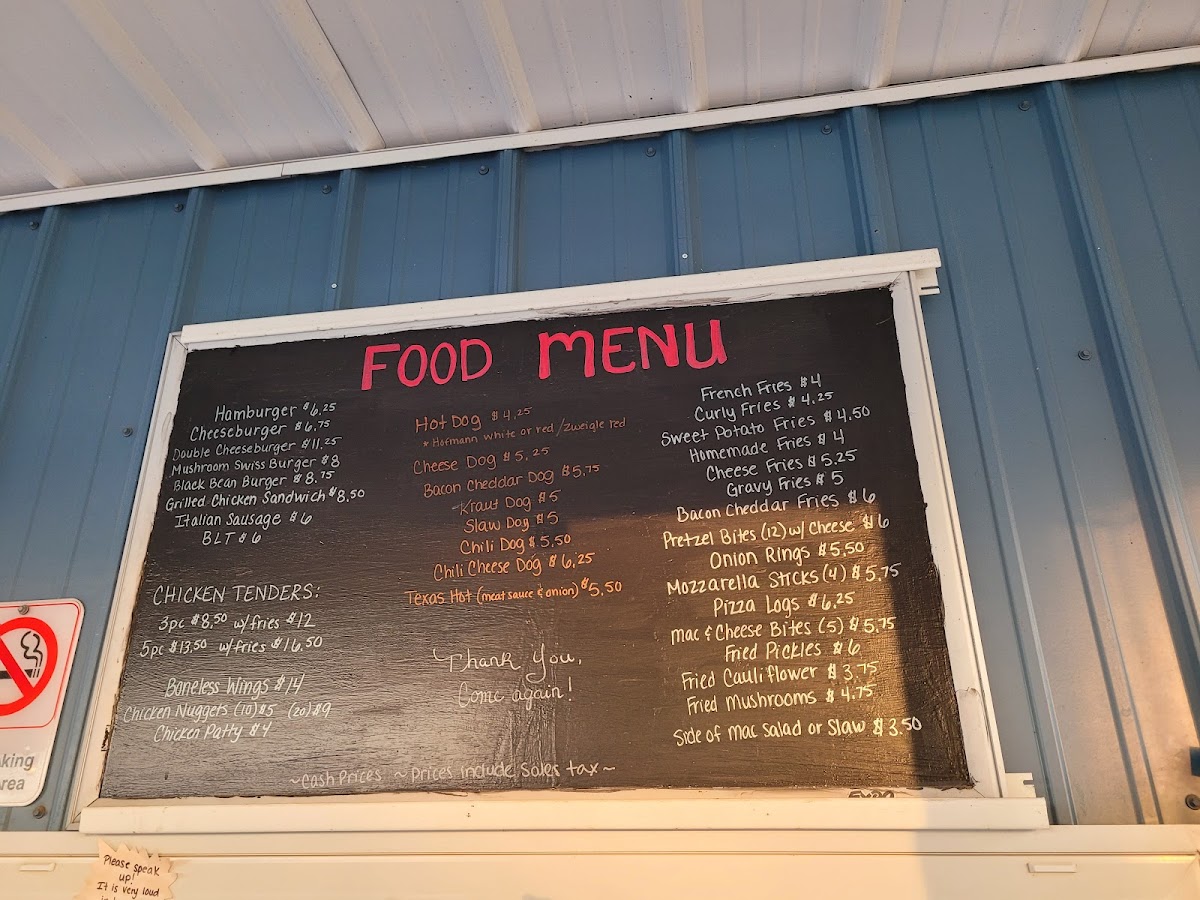 FOOD MENU
Hamburger $6.25
Cheeseburger $6.75
Double Cheeseburger $11.25
Mushroom Swiss Burger $8
Black Bean Burger $8.75
Grilled Chicken Sandwich $8.50
Italian Sausage $6
BLT $6
CHICKEN TENDERS:
3pc $8.50 w/fries $12
5pc $13.50 w/fries $16.50
Boneless Wings $14
Chicken Nuggets (10) $5 (20) $9
Chicken Patty $4
Hot Dog $4.25
*Hofmann white or red/Zweigle red
Cheese Dog $5.25
Bacon Cheddar Dog $5.75
Kraut Dog $5
Slaw Dog $5
Chili Dog $5.50
Chili Cheese Dog $6.25
Texas Hot (meat sauce & onion) $5.50
Thank You,
Come again!
French Fries $4
Curly Fries $4.25
Sweet Potato Fries $4.50
Homemade Fries $4
Cheese Fries $5.25
Gravy Fries $5
Bacon Cheddar Fries $6
Pretzel Bites (12) w/ Cheese $6
Onion Rings $5.50
Mozzarella Sticks (4) $5.75
Pizza Logs $6.25
Mac & Cheese Bites (5) $5.75
Fried Pickles $6
Fried Cauliflower $3.75
Fried Mushrooms $4.75
Side of Mac Salad or Slaw $3.50
~Cash Prices ~ Prices include Sales tax~
king
rea
Please speak
up!
It is very loud